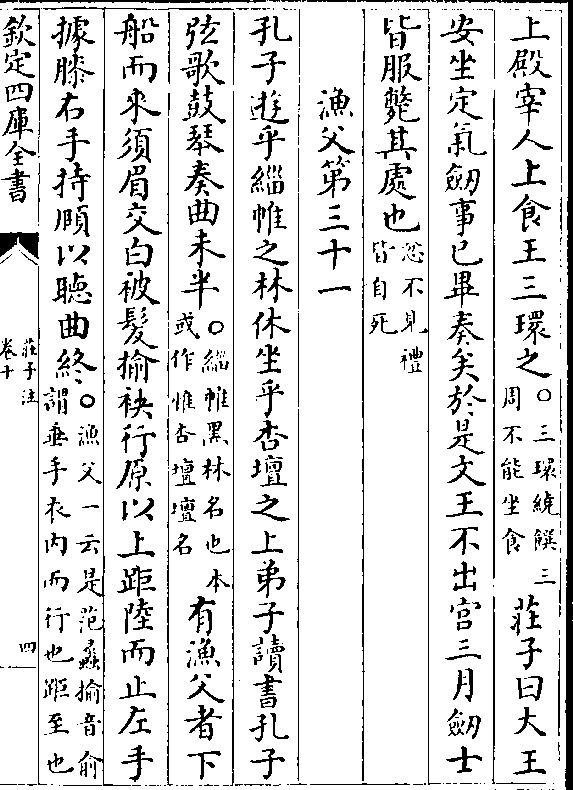 上殿宰人上食王三環之〇三環繞饌三周不能坐食莊子曰大王
安坐定氣劒事已畢奏矣於是文王不出宫三月劒士
皆服斃其處也忿不見禮皆自死
漁父第三十一
孔子遊乎緇帷之林休坐乎杏壇之上弟子讀書孔子
弦歌鼓琴奏曲未半〇緇帷黑林名也本或作惟杏壇壇名有漁父者下
船而來須眉交白被髮揄袂行原以上距陸而止左手
據膝右手持頤以聽曲終〇漁父一云是范蠡揄音俞謂垂手衣内而行也距至也
欽定四庫全書
莊子注
卷十
四